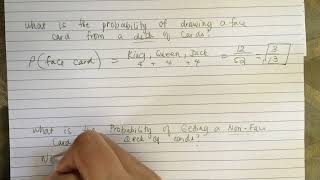 What is the probability of drawing a face
card from a deck of cards?
P(face card) = King, Queen, Jack = 12 = 3
4 + 4 + 4 52 13
What is the Probability of Getting a Non-Face
Card deck of cards?